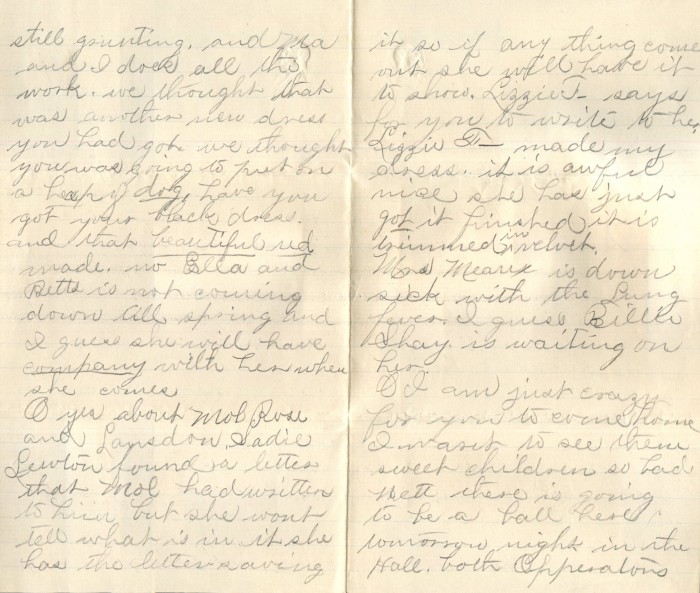 still grunting. and ma
and I dock all the
work. we thought that
was another new dress
you had got. we thought
you was going to put on
a heap of dog, have you
got your black dress.
and that beautiful red
made. no Ella and
Betts is not coming
down till spring and
I guess she will have
company with her when
she comes
O yes about Mol Rose
and Lansdon. Sadie
Lewton found a letter
that Mol had written
to him but she wont
tell what is in it she
has the letter saving
it so if any thing come
out she will have it
to show. Lizzie T- says
for you to write to her
Lizzie T- made my
dress. it is awful
nice she has just
got it finished it is
trimmed in velvet.
Mrs Mearix is down
sick with the Lung
fever. I guess Billie
Shay. is waiting on
her.
O I am just crazy
for you to come home
I want to see them
sweet children so bad
Nett there is going
to be a ball here
tomorrow night in the
Hall. both Opperators